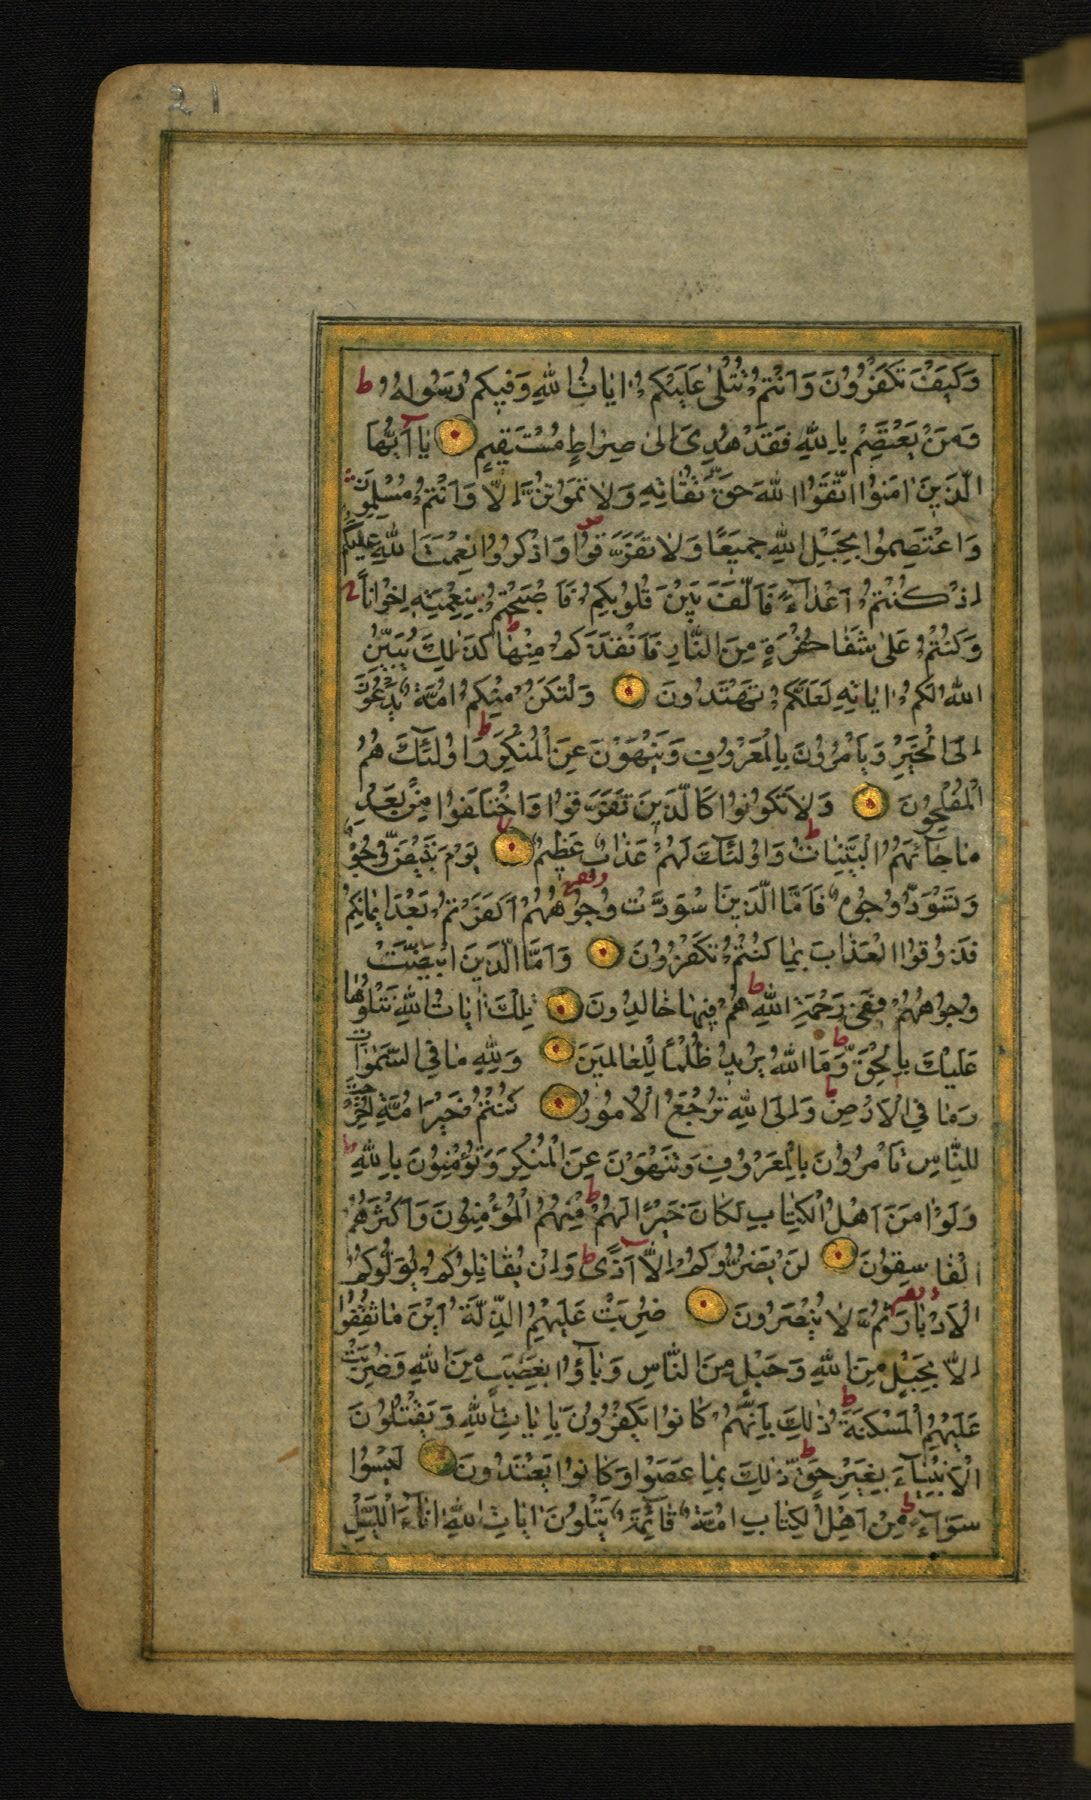 21
وَكَيْفَ تَكْفُرُونَ وَاَنْتُمْ تُتْلٰى عَلَيْكُمْ اٰيَاتُ اللّٰهِ وَفِيكُمْ رَسُولُهُ ط
وَمَنْ يَعْتَصِمْ بِاللّٰهِ فَقَدْ هُدِىَ اِلٰى صِرَاطٍ مُسْتَقِيمٍ يَا اَيُّهَا
الَّذِينَ اٰمَنُوا اتَّقُوا اللّٰهَ حَقَّ تُقَاتِهِ وَلَا تَمُوتُنَّ اِلَّا وَاَنْتُمْ مُسْلِمُونَ
وَاعْتَصِمُوا بِحَبْلِ اللّٰهِ جَمِيعًا وَلَا تَفَرَّقُوا وَاذْكُرُوا نِعْمَتَ اللّٰهِ عَلَيْكُمْ
اِذْ كُنْتُمْ اَعْدَآءً فَاَلَّفَ بَيْنَ قُلُوبِكُمْ فَاَصْبَحْتُمْ بِنِعْمَتِهِ اِخْوَانًا
وَكُنْتُمْ عَلٰى شَفَا حُفْرَةٍ مِنَ النَّارِ فَاَنْقَذَكُمْ مِنْهَا ط كَذٰلِكَ يُبَيِّنُ
اللّٰهُ لَكُمْ اٰيَاتِهِ لَعَلَّكُمْ تَهْتَدُونَ وَلْتَكُنْ مِنْكُمْ اُمَّةٌ يَدْعُونَ
اِلَى الْخَيْرِ وَيَاْمُرُونَ بِالْمَعْرُوفِ وَيَنْهَوْنَ عَنِ الْمُنْكَرِ ط وَاُولٰئِكَ هُمُ
الْمُفْلِحُونَ وَلَا تَكُونُوا كَالَّذِينَ تَفَرَّقُوا وَاخْتَلَفُوا مِنْ بَعْدِ
مَا جَآءَهُمُ الْبَيِّنَاتُ ط وَاُولٰئِكَ لَهُمْ عَذَابٌ عَظِيمٌ يَوْمَ تَبْيَضُّ وُجُوهٌ
وَتَسْوَدُّ وُجُوهٌ فَاَمَّا الَّذِينَ اسْوَدَّتْ وُجُوهُهُمْ اَكَفَرْتُمْ بَعْدَ اِيمَانِكُمْ
فَذُوقُوا الْعَذَابَ بِمَا كُنْتُمْ تَكْفُرُونَ وَاَمَّا الَّذِينَ ابْيَضَّتْ
وُجُوهُهُمْ فَفِى رَحْمَةِ اللّٰهِ ط هُمْ فِيهَا خَالِدُونَ تِلْكَ اٰيَاتُ اللّٰهِ نَتْلُوهَا
عَلَيْكَ بِالْحَقِّ ط وَمَا اللّٰهُ يُرِيدُ ظُلْمًا لِلْعَالَمِينَ وَلِلّٰهِ مَا فِى السَّمٰوَاتِ
وَمَا فِى الْاَرْضِ ط وَاِلَى اللّٰهِ تُرْجَعُ الْاُمُورُ كُنْتُمْ خَيْرَ اُمَّةٍ اُخْرِجَتْ
لِلنَّاسِ تَاْمُرُونَ بِالْمَعْرُوفِ وَتَنْهَوْنَ عَنِ الْمُنْكَرِ وَتُؤْمِنُونَ بِاللّٰهِ ط
وَلَوْ اٰمَنَ اَهْلُ الْكِتَابِ لَكَانَ خَيْرًا لَهُمْ ط مِنْهُمُ الْمُؤْمِنُونَ وَاَكْثَرُهُمُ
الْفَاسِقُونَ لَنْ يَضُرُّوكُمْ اِلَّا اَذًى ط وَاِنْ يُقَاتِلُوكُمْ يُوَلُّوكُمُ
الْاَدْبَارَ ثُمَّ لَا يُنْصَرُونَ ضُرِبَتْ عَلَيْهِمُ الذِّلَّةُ اَيْنَ مَا ثُقِفُوا
اِلَّا بِحَبْلٍ مِنَ اللّٰهِ وَحَبْلٍ مِنَ النَّاسِ وَبَآؤُا بِغَضَبٍ مِنَ اللّٰهِ وَضُرِبَتْ
عَلَيْهِمُ الْمَسْكَنَةُ ط ذٰلِكَ بِاَنَّهُمْ كَانُوا يَكْفُرُونَ بِاٰيَاتِ اللّٰهِ وَيَقْتُلُونَ
الْاَنْبِيَآءَ بِغَيْرِ حَقٍّ ط ذٰلِكَ بِمَا عَصَوْا وَكَانُوا يَعْتَدُونَ لَيْسُوا
سَوَآءً ط مِنْ اَهْلِ الْكِتَابِ اُمَّةٌ قَآئِمَةٌ يَتْلُونَ اٰيَاتِ اللّٰهِ اٰنَآءَ اللَّيْلِ